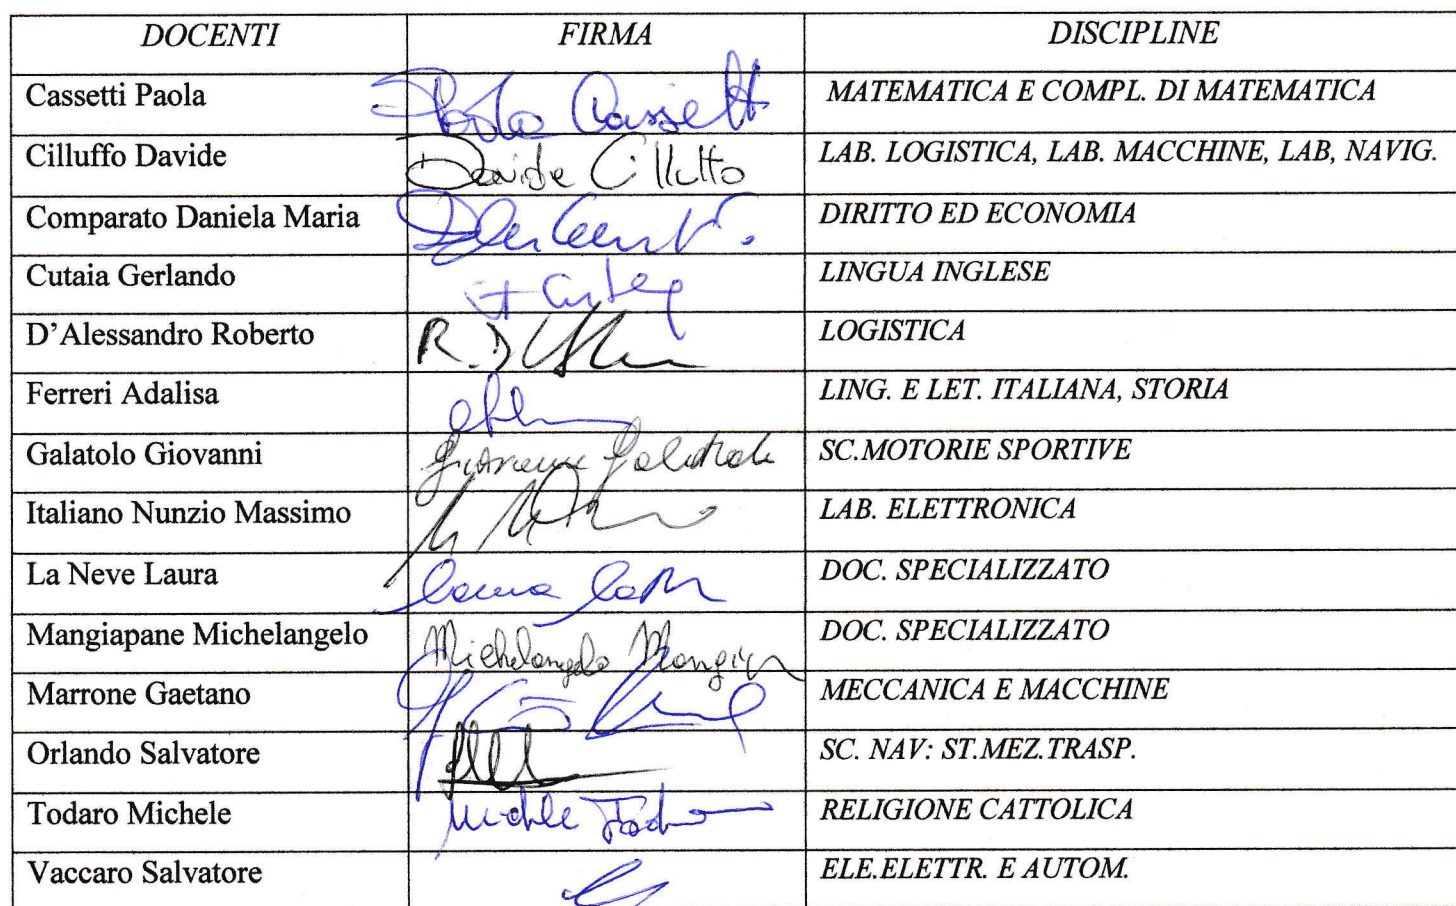 DOCENTI FIRMA DISCIPLINE
Cassetti Paola Paola Cassetti MATEMATICA E COMPL. DI MATEMATICA
Cilluffo Davide Davide Cilluffo LAB. LOGISTICA, LAB. MACCHINE, LAB, NAVIG.
Comparato Daniela Maria DIRITTO ED ECONOMIA
Cutaia Gerlando LINGUA INGLESE
D'Alessandro Roberto R. D LOGISTICA
Ferreri Adalisa LING. E LET. ITALIANA, STORIA
Galatolo Giovanni Giovanni Galatolo SC.MOTORIE SPORTIVE
Italiano Nunzio Massimo LAB. ELETTRONICA
La Neve Laura Laura DOC. SPECIALIZZATO
Mangiapane Michelangelo Michelangelo DOC. SPECIALIZZATO
Marrone Gaetano MECCANICA E MACCHINE
Orlando Salvatore SC. NAV: ST.MEZ.TRASP.
Todaro Michele Michele RELIGIONE CATTOLICA
Vaccaro Salvatore ELE.ELETTR. E AUTOM.